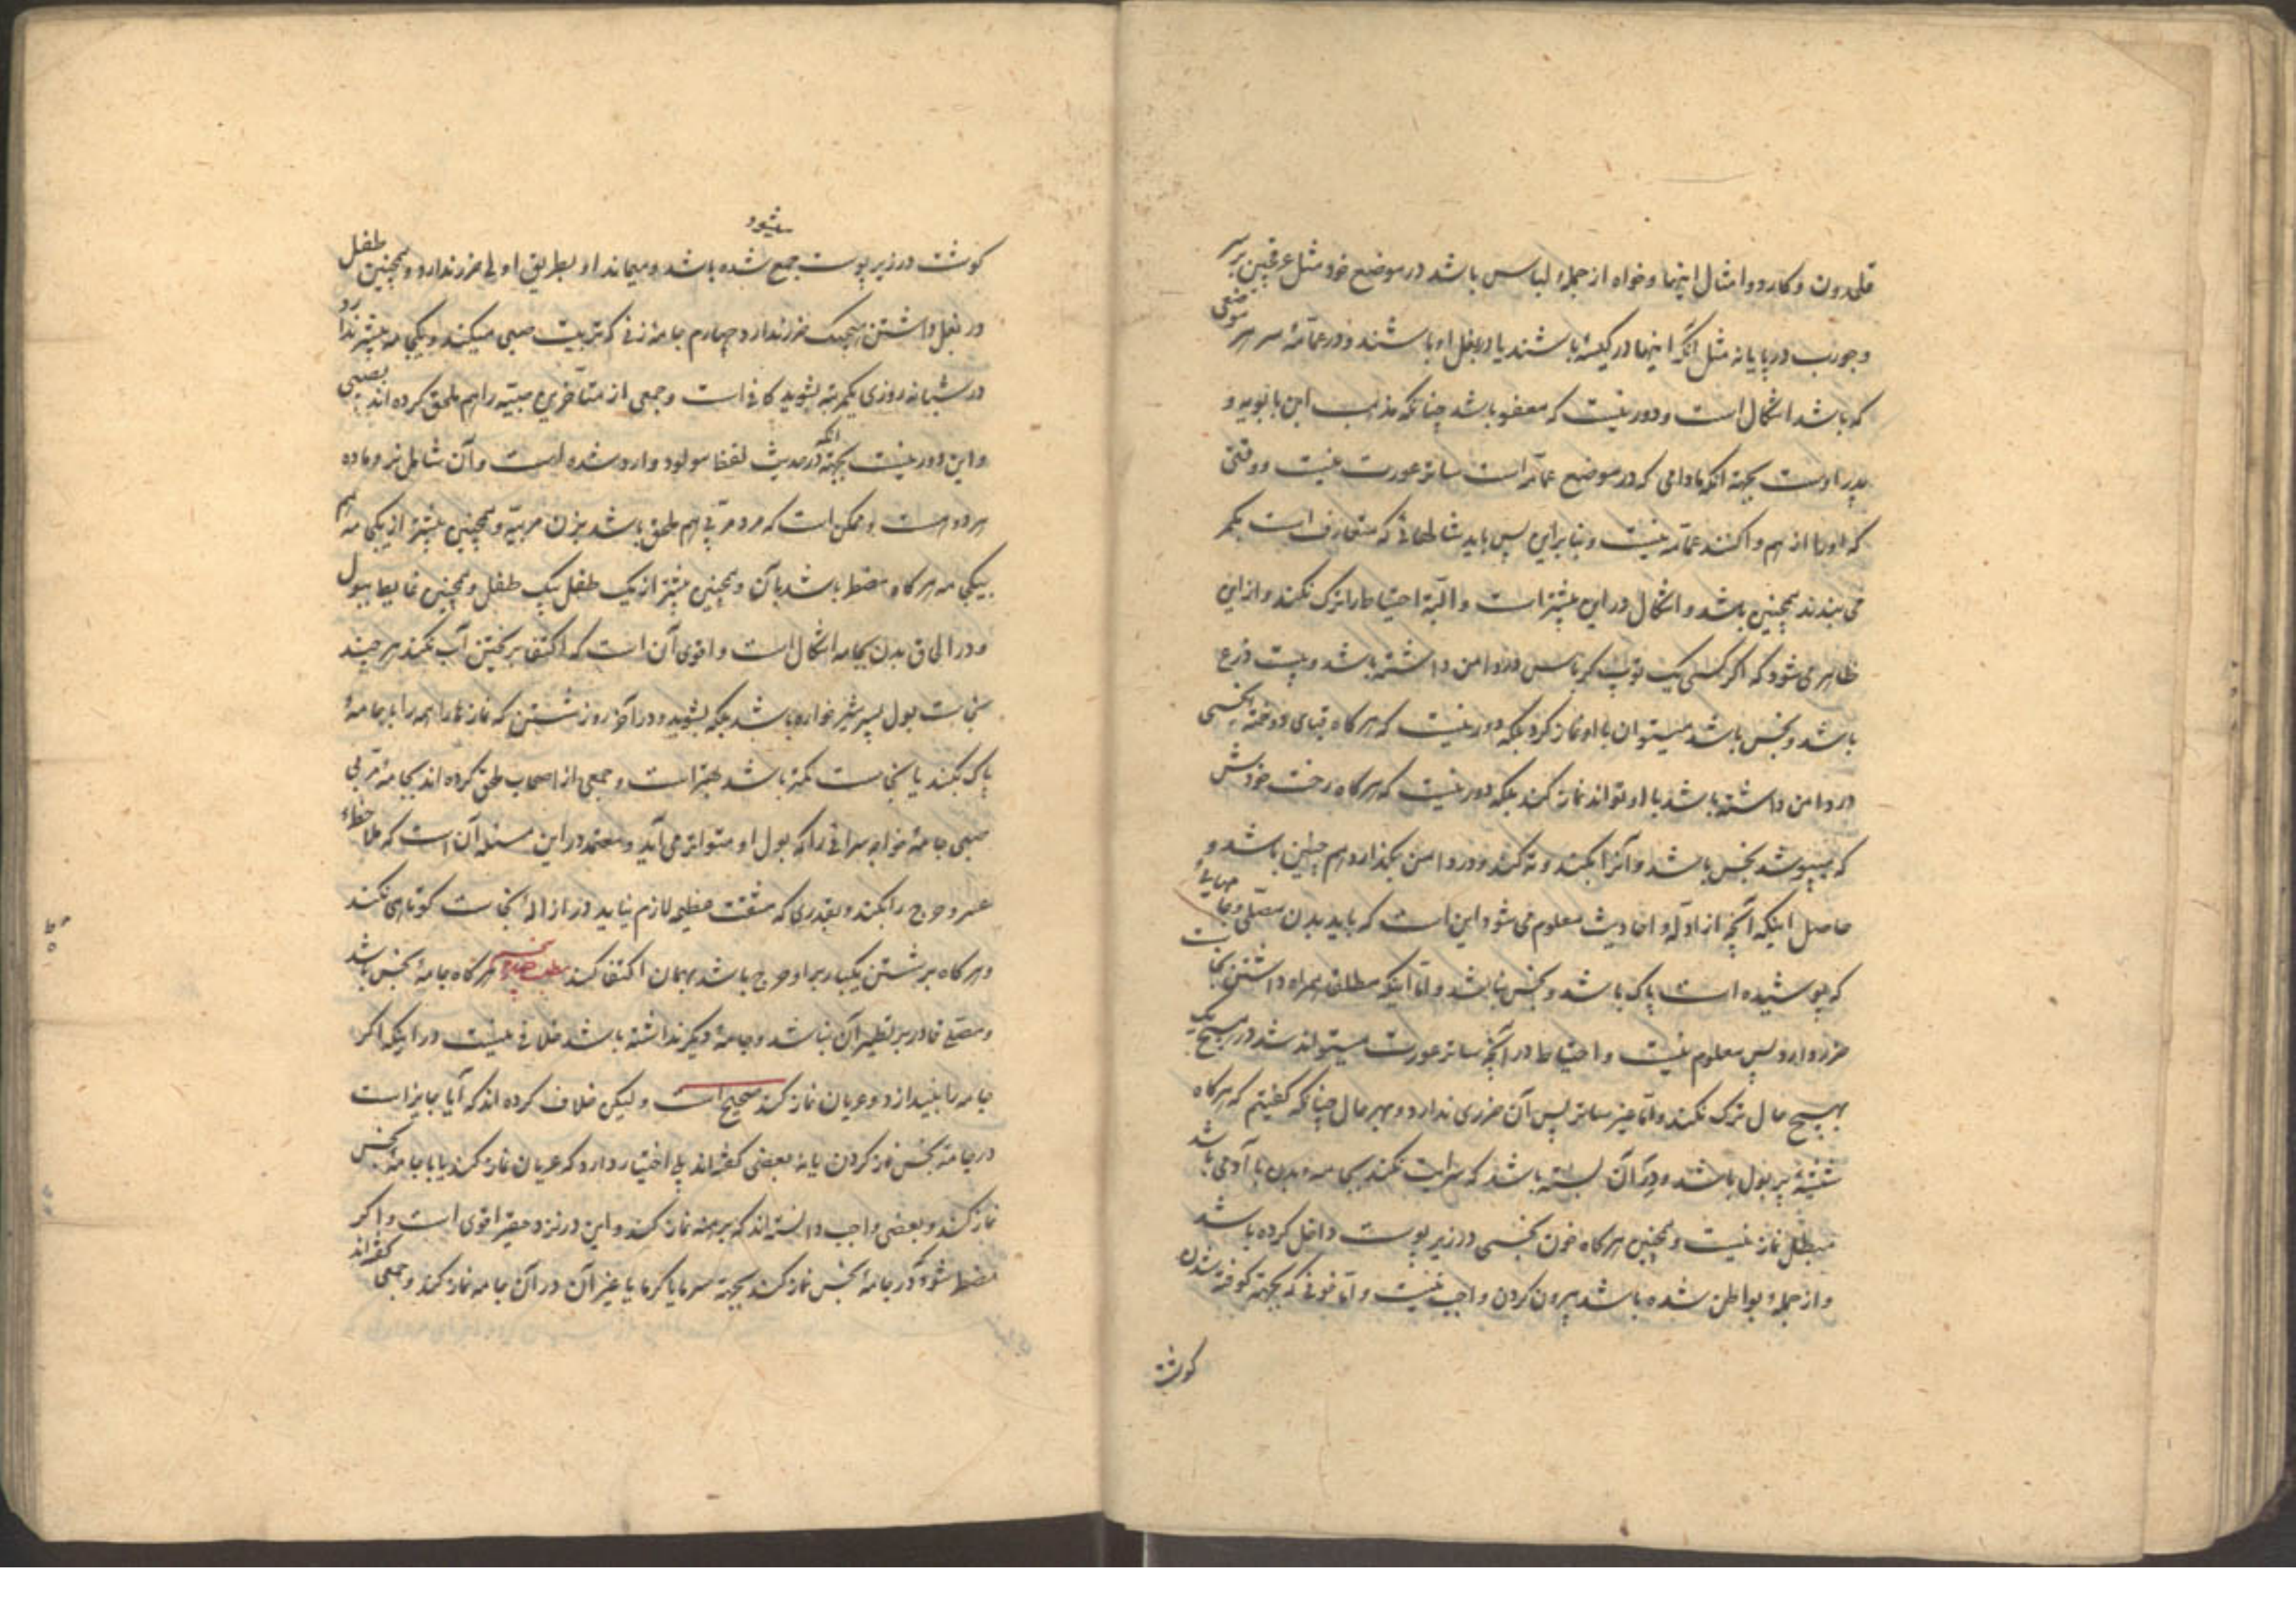 قلمدون و کارد و امثال اینها و خواه از جملهٔ لباس باشد در موضع خود مثل عرقچین بر سر
و جورب در پا یا نه مثل آنکه اینها در کیسهٔ باشند یا در بغل او باشند و در عمّامهٔ سر هر موضعی
که باشد اشکال است و دور نیست که معفو باشد چنانکه مذهب ابن بابویه و
پدر اوست بجهة آنکه مادامی که در موضع عمّامه است ساتر عورت نیست و وقتی
که او را از هم وا کنند عمّامه نیست و بنابراین پس باید شالهائی که متعارف است بکمر
می بندند همچنین باشد و اشکال در این بیشتر است و البتّه احتیاط را ترک نکند و از این
ظاهر می شود که اگر کسی یک توپ کرباس در دامن داشته باشد و بیست ذرع
باشد و نجس باشد میتوان با او نماز کرد بلکه دور نیست که هرگاه قبای دوختهٔ نجسی
در دامن داشته باشد با او تواند نماز کند بلکه دور نیست که هرگاه رخت خودش
که میپوشد نجس باشد و آنرا بکند و ته کند و در دامن بگذارد هم چنین باشد و
حاصل اینکه آنچه از ادلّه و احادیث معلوم می شود این است که باید بدن مصلّی و جامهایی
که پوشیده است پاک باشد و نجس نباشد و امّا اینکه مطلق همراه داشتن نجاست
ضرر دارد پس معلوم نیست و احتیاط در آنچه ساتر عورت میتواند شد در هیچ یک
بهیچ حال ترک نکند و امّا غیر ساتر پس آن ضرری ندارد و بهر حال چنانکه گفتیم که هرگاه
شیشهٔ پر بول باشد و در آن بسته باشد که سرایت نکند بجامه و بدن با آدمی باشد
مبطل نماز نیست و همچنین هرگاه خون نجسی در زیر پوست داخل کرده باشد
و از جملهٔ بواطن شده باشد بیرون کردن واجب نیست و امّا خونی که بجهة کوفته شدن
کوشت
میشود
کوشت در زیر پوست جمع شده باشد و میماند او بطریق اولی ضرر ندارد و همچنین طفل
در بغل داشتن هیچیک ضرر ندارد چهارم جامهٔ زنی که تربیت صبی میکند و یکجامه بیشتر ندارد
در شبانه روزی یکمرتبه بشوید کافی است و جمعی از متأخّرین صبیّه را هم ملحق کرده اند بصبی
و این دور نیست بجهة آنکه در حدیث لفظ مولود وارد شده است و آن شامل نر و ماده
هر دو هست و ممکن است که مرد مربّی هم ملحق باشد بزن مربیّه و همچنین بیشتر از یکجامه هم
بیکجامه هرگاه مضطر باشد بآن و همچنین بیشتر از یک طفل بیک طفل و همچنین غایط ببول
و در الحاق بدن بجامه اشکال است و اقوی آن است که اکتفا بر ریختن آب نکند هر چند
نجاست بول پسر شیرخواره باشد بلکه بشوید و در آخر روز شستن که نمازها را همه را با جامهٔ
پاک بکند یا نجاست کمتر باشد بهتر است و جمعی از اصحاب ملحق کرده اند بجامهٔ مربّی
صبی جامهٔ خواجه سرائی را که بول او متواتر می آید و معتمد در این مسئله آن است که ملاحظهٔ
عسر و حرج را بکند و بقدری که مشقّت عظیمه لازم نیاید در ازالهٔ نجاست کوتاهی نکند
و هرگاه بر شستن یکبار بر او حرج باشد بهمان اکتفا کند هرگاه جامهٔ نجس باشد
و مصلّی قادر بر تطهیر آن نباشد و جامهٔ دیگر نداشته باشد خلافی نیست در اینکه اگر
جامه را بیندازد و عریان نماز کند صحیح است و لیکن خلاف کرده اند که آیا جایز است
در جامهٔ نجس نماز کردن یا نه بعضی گفته اند بلی اختیار دارد که عریان نماز کند یا با جامهٔ نجس
نماز کند و بعضی واجب دانسته اند که برهنه نماز کند و این در نزد حقیر اقوی است و اگر
مضطر شود که در جامهٔ نجس نماز کند بجهة سرما یا گرما یا غیر آن در آن جامه نماز کند و جمعی گفته اند